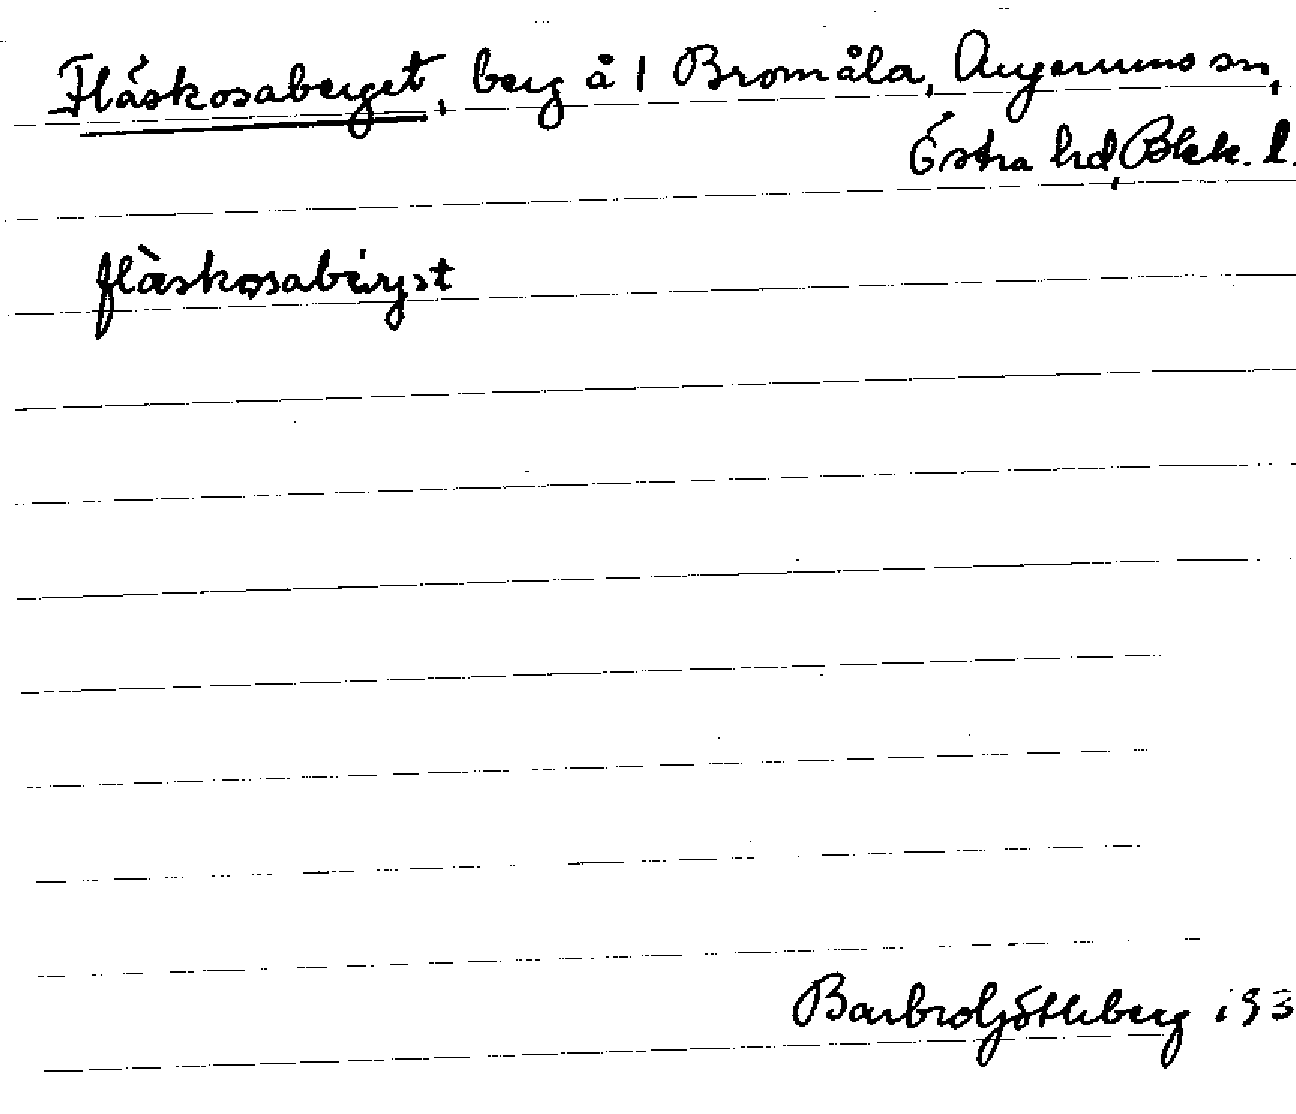 Fläskosaberget, berg å 1 Bromåla, Augerums sn,
Östra hd, Blek. l.
flàskosabérjət
Barbro Götleberg 193